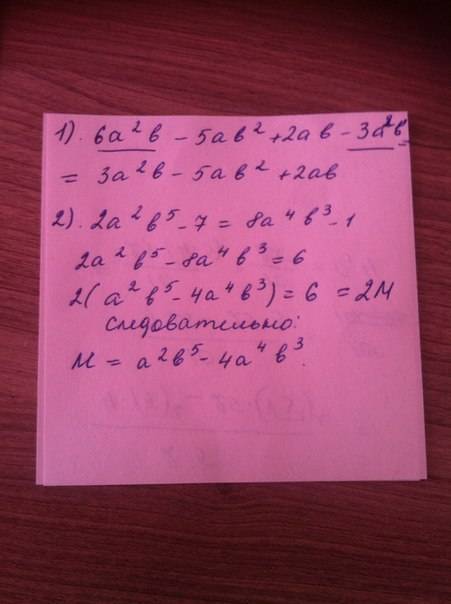 1). 6a²b - 5ab² + 2ab - 3a²b =
= 3a²b - 5ab² + 2ab
2). 2a²b⁵ - 7 = 8a⁴b³ - 1
2a²b⁵ - 8a⁴b³ = 6
2(a²b⁵ - 4a⁴b³) = 6 = 2M
следовательно:
M = a²b⁵ - 4a⁴b³.